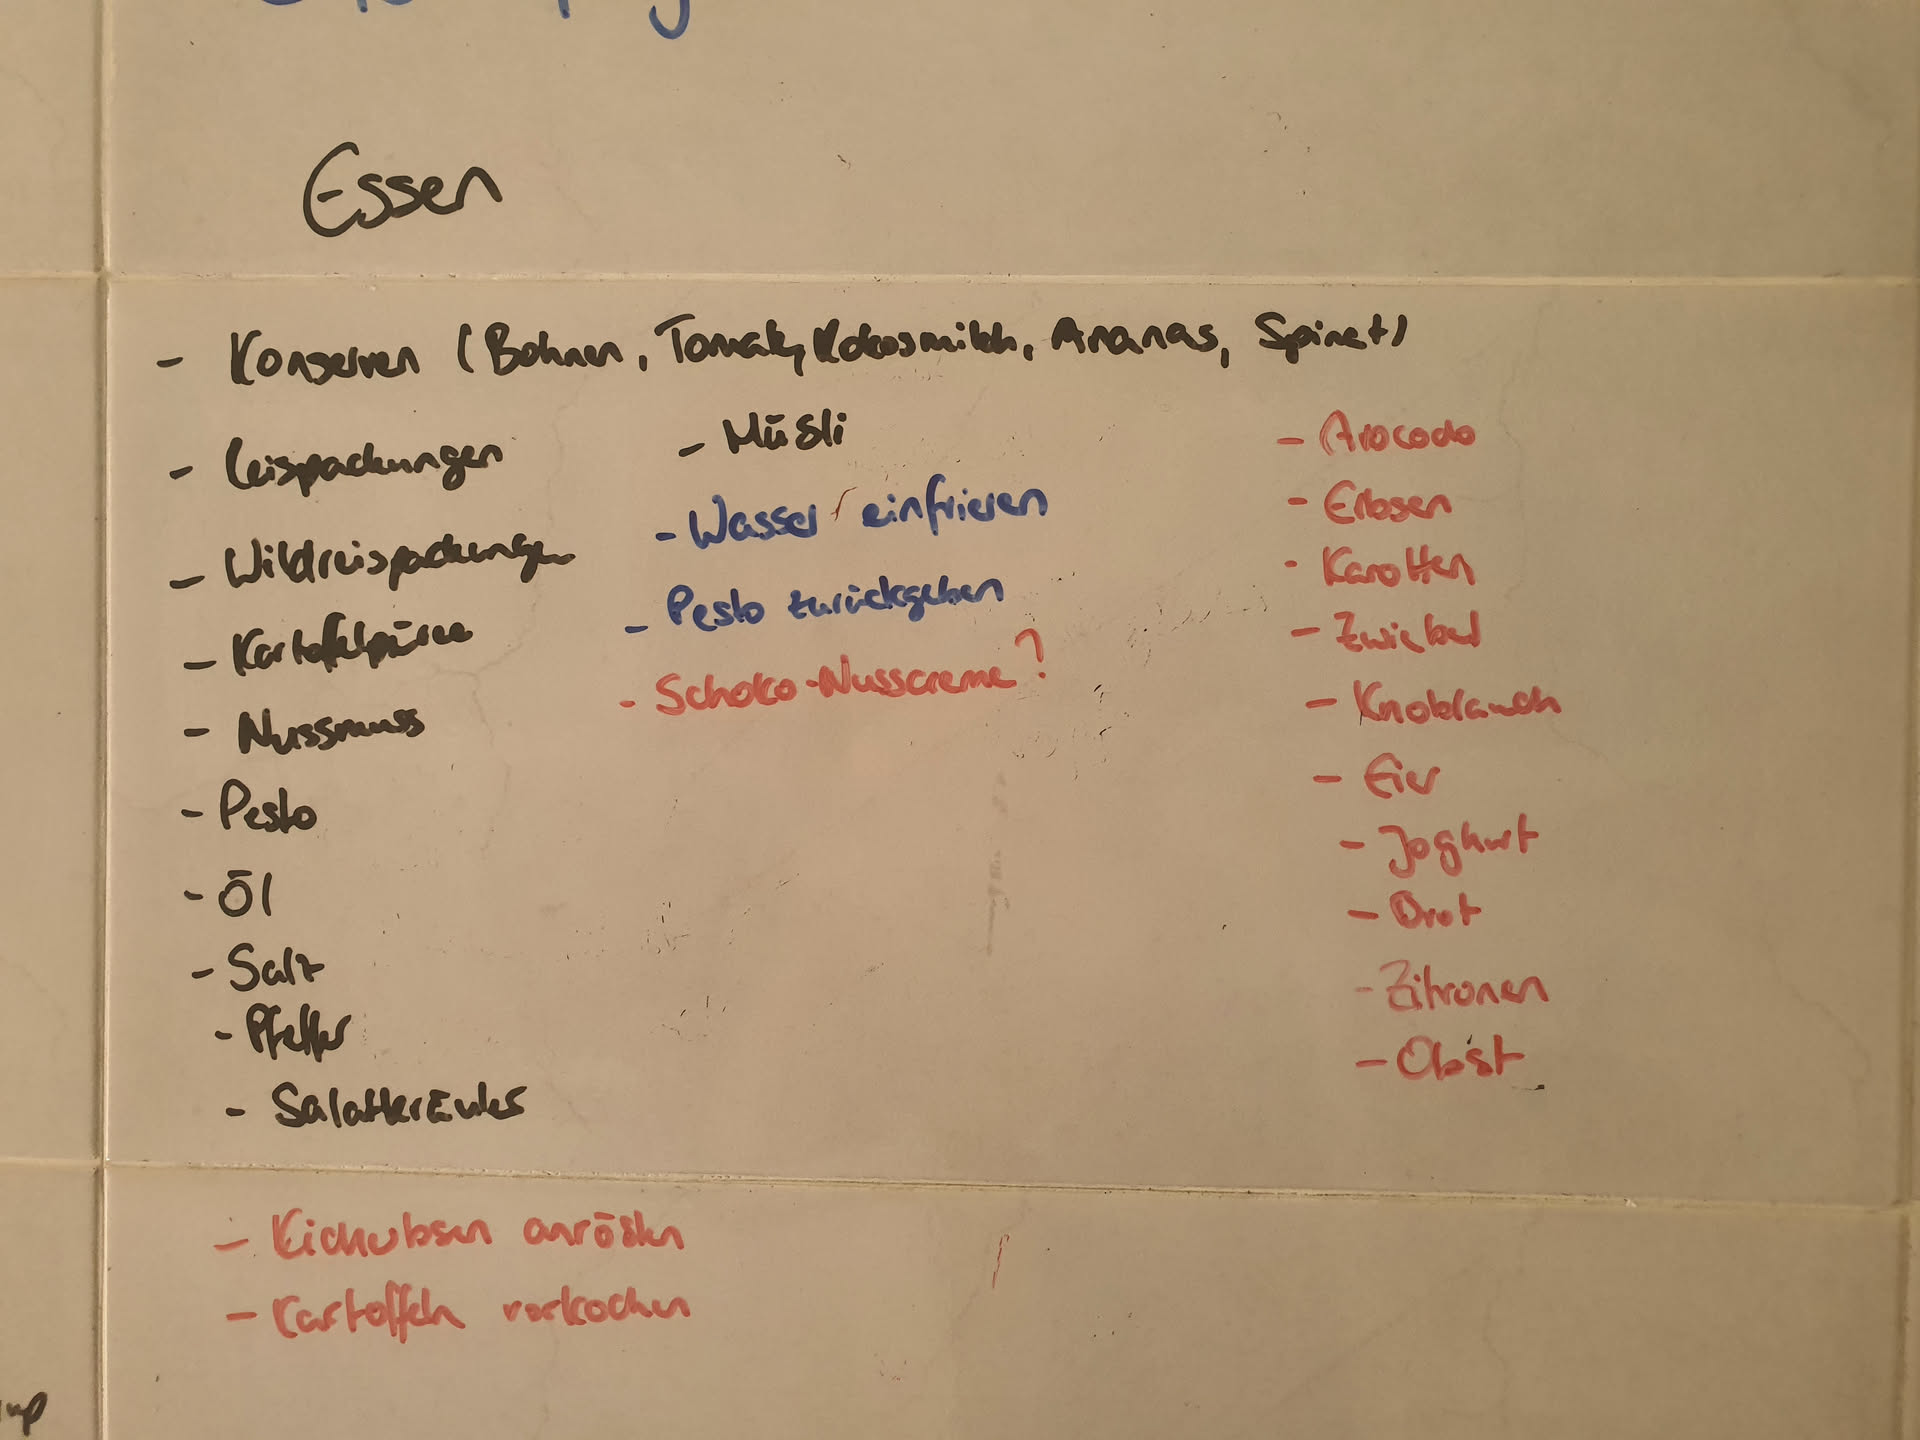 Essen
- Konserven (Bohnen, Tomate, Kokosmilch, Ananas, Spinat)
- Reispackungen
- Wildreispackungen
- Kartoffelpüree
- Nussmuss
- Pesto
- Öl
- Salz
- Pfeffer
- Salatkräuter
- Müsli
- Wasser einfrieren
- Pesto zurückgeben
- Schoko-Nusscreme?
- Avocado
- Erbsen
- Karotten
- Zwiebel
- Knoblauch
- Eier
- Joghurt
- Brot
- Zitronen
- Obst
- Kichererbsen anrösten
- Kartoffeln vorkochen